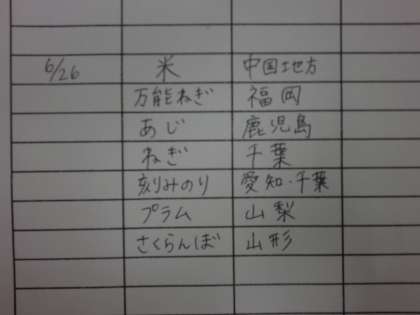 6/26 米 中国地方
万能ねぎ 福岡
あじ 鹿児島
ねぎ 千葉
刻みのり 愛知・千葉
プラム 山梨
さくらんぼ 山形